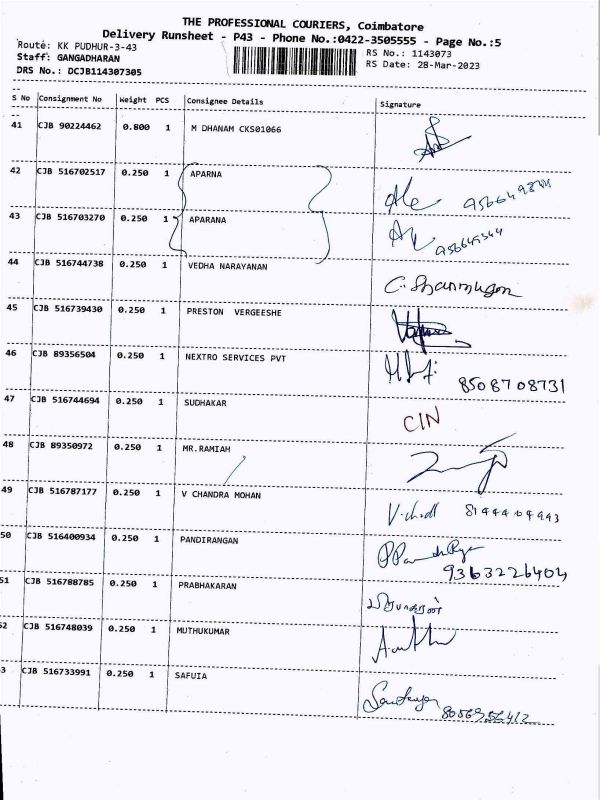 THE PROFESSIONAL COURIERS, Coimbatore
Delivery Runsheet - P43 - Phone No.:0422-3505555 - Page No.:5
Route: KK PUDHUR-3-43
RS No.: 1143073
Staff: GANGADHARAN
RS Date: 28-Mar-2023
DRS No.: DCJB114307305
S No Consignment No Weight PCS Consignee Details Signature
41 CJB 90224462 0.800 1 M DHANAM CKS01066
42 CJB 516702517 0.250 1 APARNA
43 CJB 516703270 0.250 1 APARANA
44 CJB 516744738 0.250 1 VEDHA NARAYANAN C. Shanmugam
45 CJB 516739430 0.250 1 PRESTON VERGEESHE
46 CJB 89356504 0.250 1 NEXTRO SERVICES PVT 8508708731
47 CJB 516744694 0.250 1 SUDHAKAR CIN
48 CJB 89350972 0.250 1 MR.RAMIAH
49 CJB 516787177 0.250 1 V CHANDRA MOHAN
50 CJB 516400934 0.250 1 PANDIRANGAN 9363226404
51 CJB 516788785 0.250 1 PRABHAKARAN பிரபாகரன்
52 CJB 516748039 0.250 1 MUTHUKUMAR
53 CJB 516733991 0.250 1 SAFUIA 8056956412